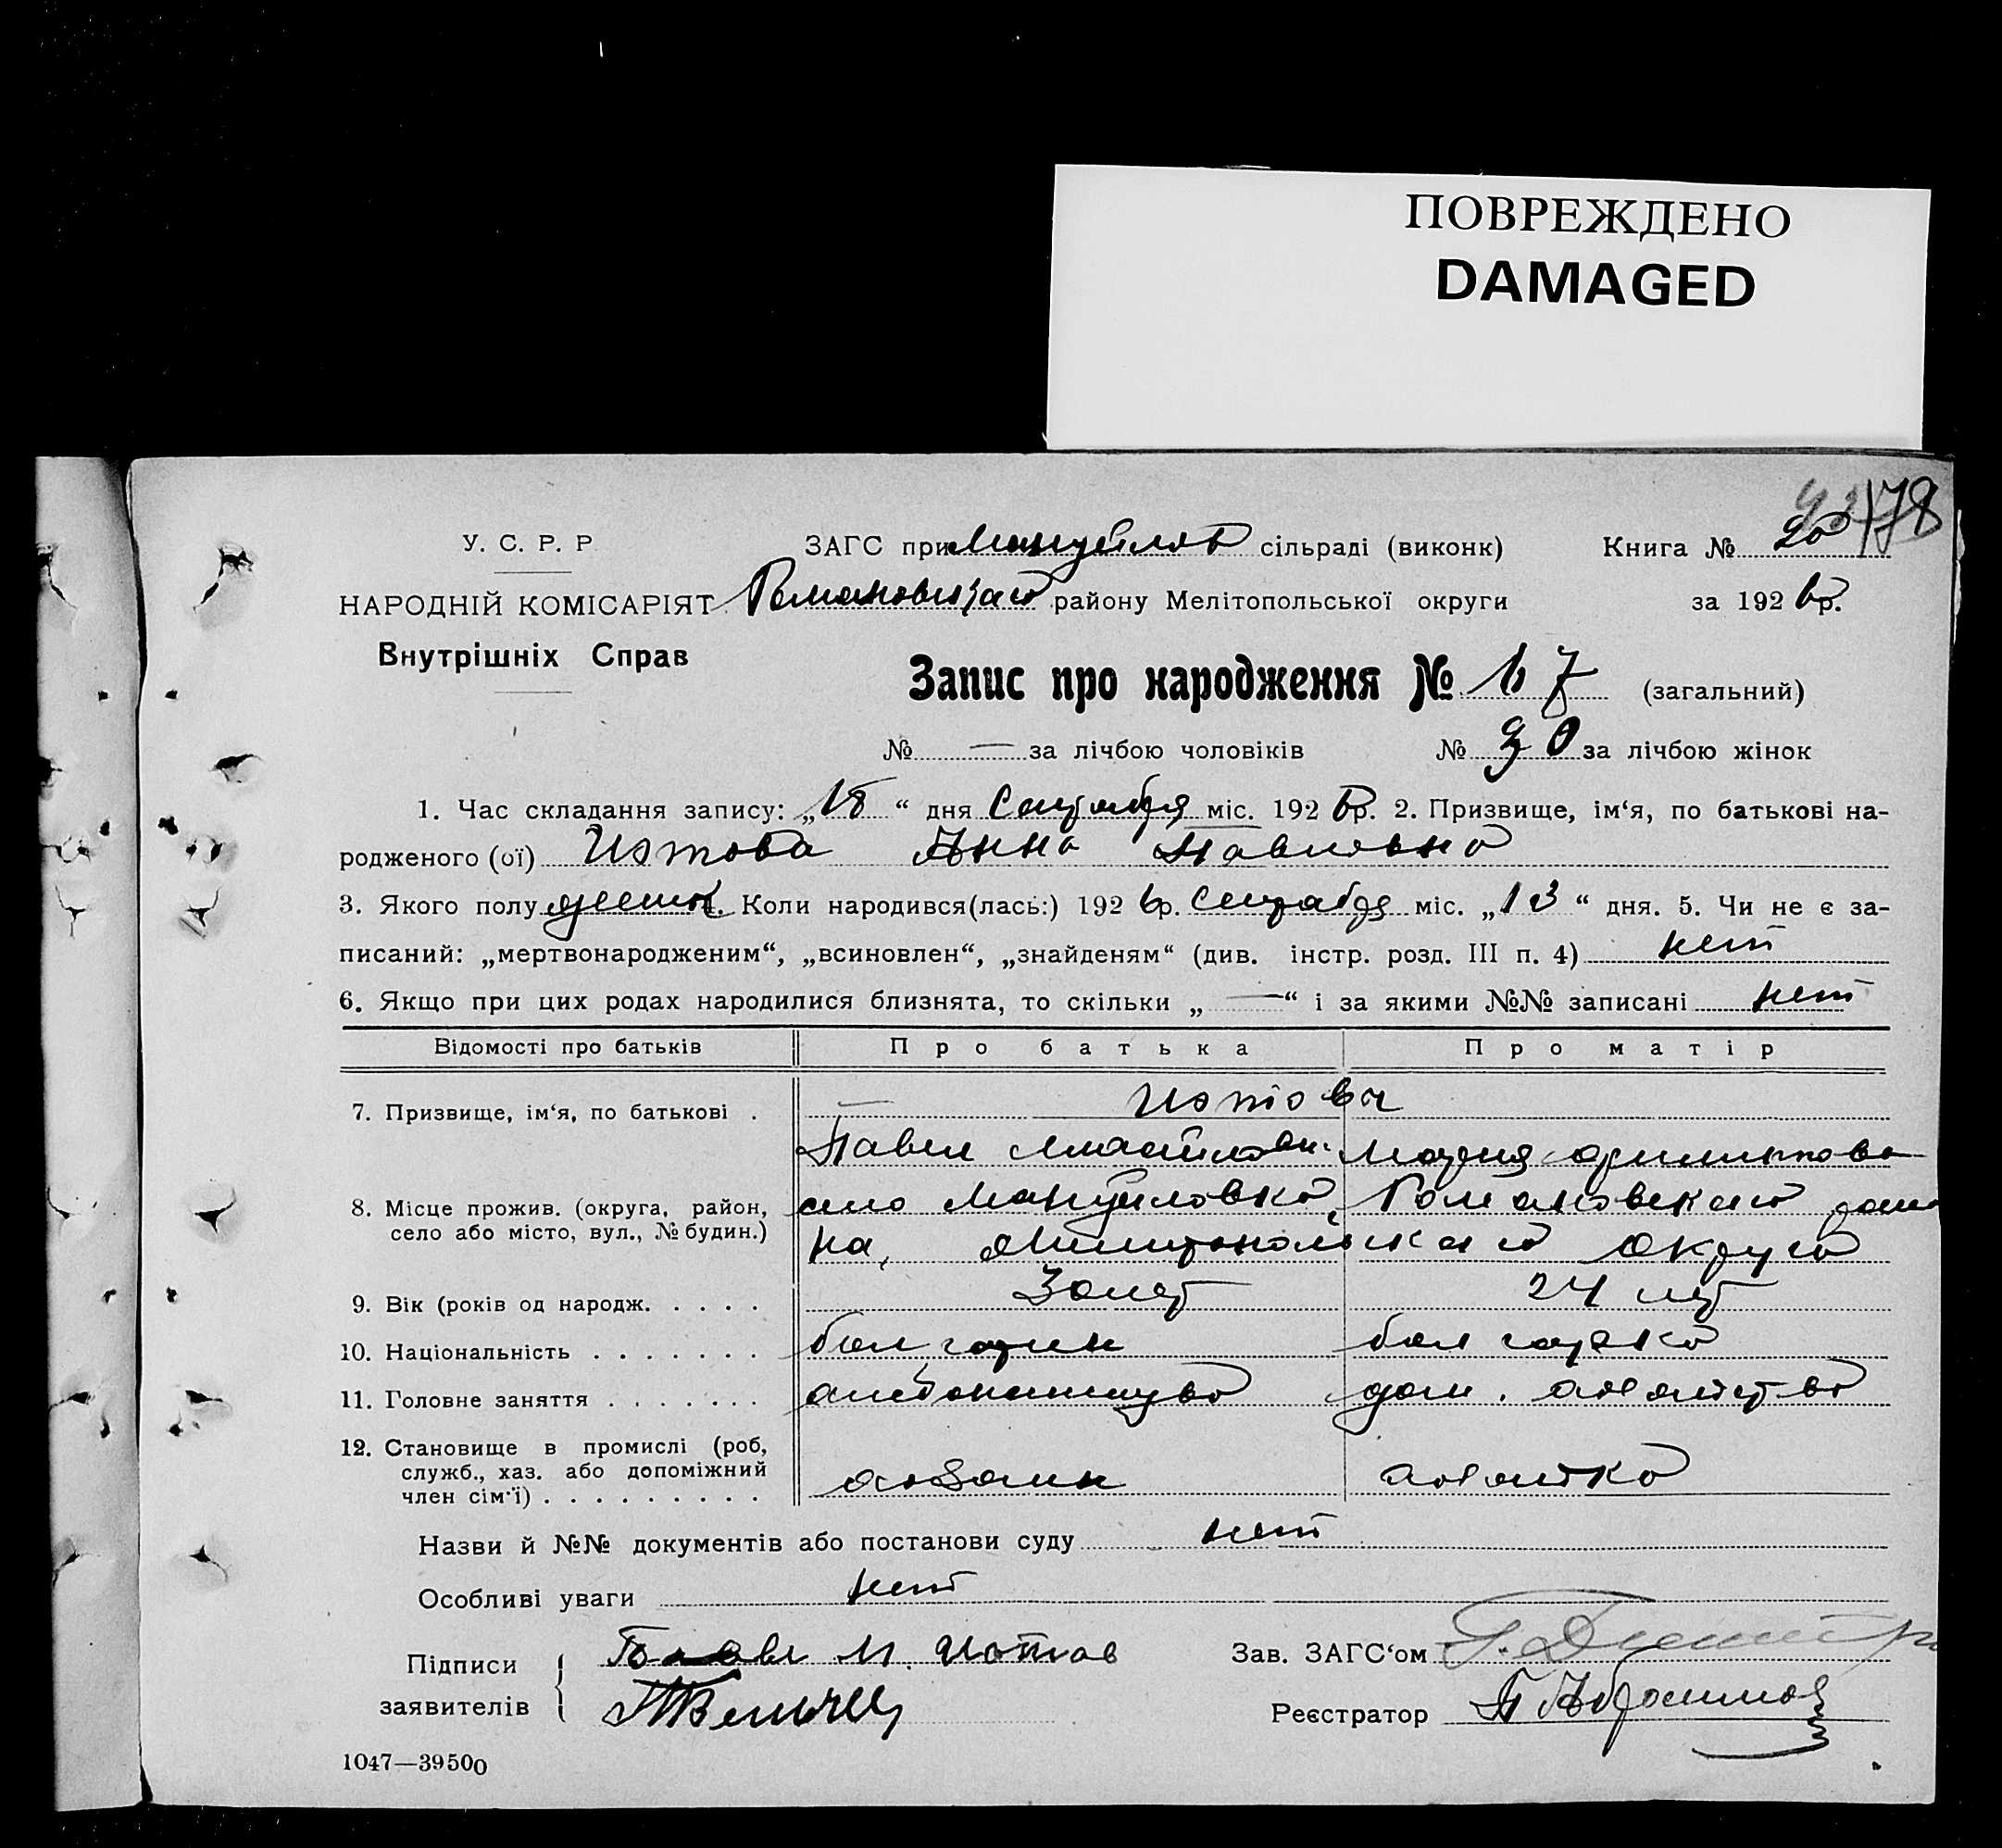 ПОВРЕЖДЕНО
DAMAGED
178
У. С. Р. Р
ЗАГС при Мануйлов сільраді (виконк)
Книга № 20
НАРОДНІЙ КОМІСАРІЯТ
Романовского району Мелітопольської округи
за 1926 р.
Внутрішніх Справ
Запис про народження № 67 (загальний)
№ — за лічбою чоловіків
№ 30 за лічбою жінок
1. Час складання запису: „18“ дня Сентября міс. 1926 р. 2. Призвище, ім‘я, по батькові на-
родженого (ої) Изтова Анна Павловна
3. Якого полу женск 4. Коли народився(лась:) 1926 р. Сентября міс. „13“ дня. 5. Чи не є за-
писаний: „мертвонародженим“, „всиновлен“, „знайденям“ (див. інстр. розд. III п. 4) нет
6. Якщо при цих родах народилися близнята, то скільки „ — “ і за якими №№ записані нет
Відомості про батьків
Про батька
Про матір
7. Призвище, ім‘я, по батькові .
— Изтовы
Павел
Мария
8. Місце прожив. (округа, район,
село або місто, вул., № будин.)
село Мануйловка, Романовского райо
на, Мелитопольского округа
9. Вік (років од народж. . . . .
30 лет
24 лет
10. Національність . . . . . . .
болгарин
болгарка
11. Головне заняття . . . . . . .
хлебопашество
дом. хозяйство
12. Становище в промислі (роб,
служб., хаз. або допоміжний
член сім‘ї) . . . . . . . . .
хозяин
хозяйка
Назви й №№ документів або постанови суду нет
Особливі уваги нет
Підписи
заявителів
М. Изтов
Зав. ЗАГС‘ом Г. Димитр
Реєстратор
1047—39500